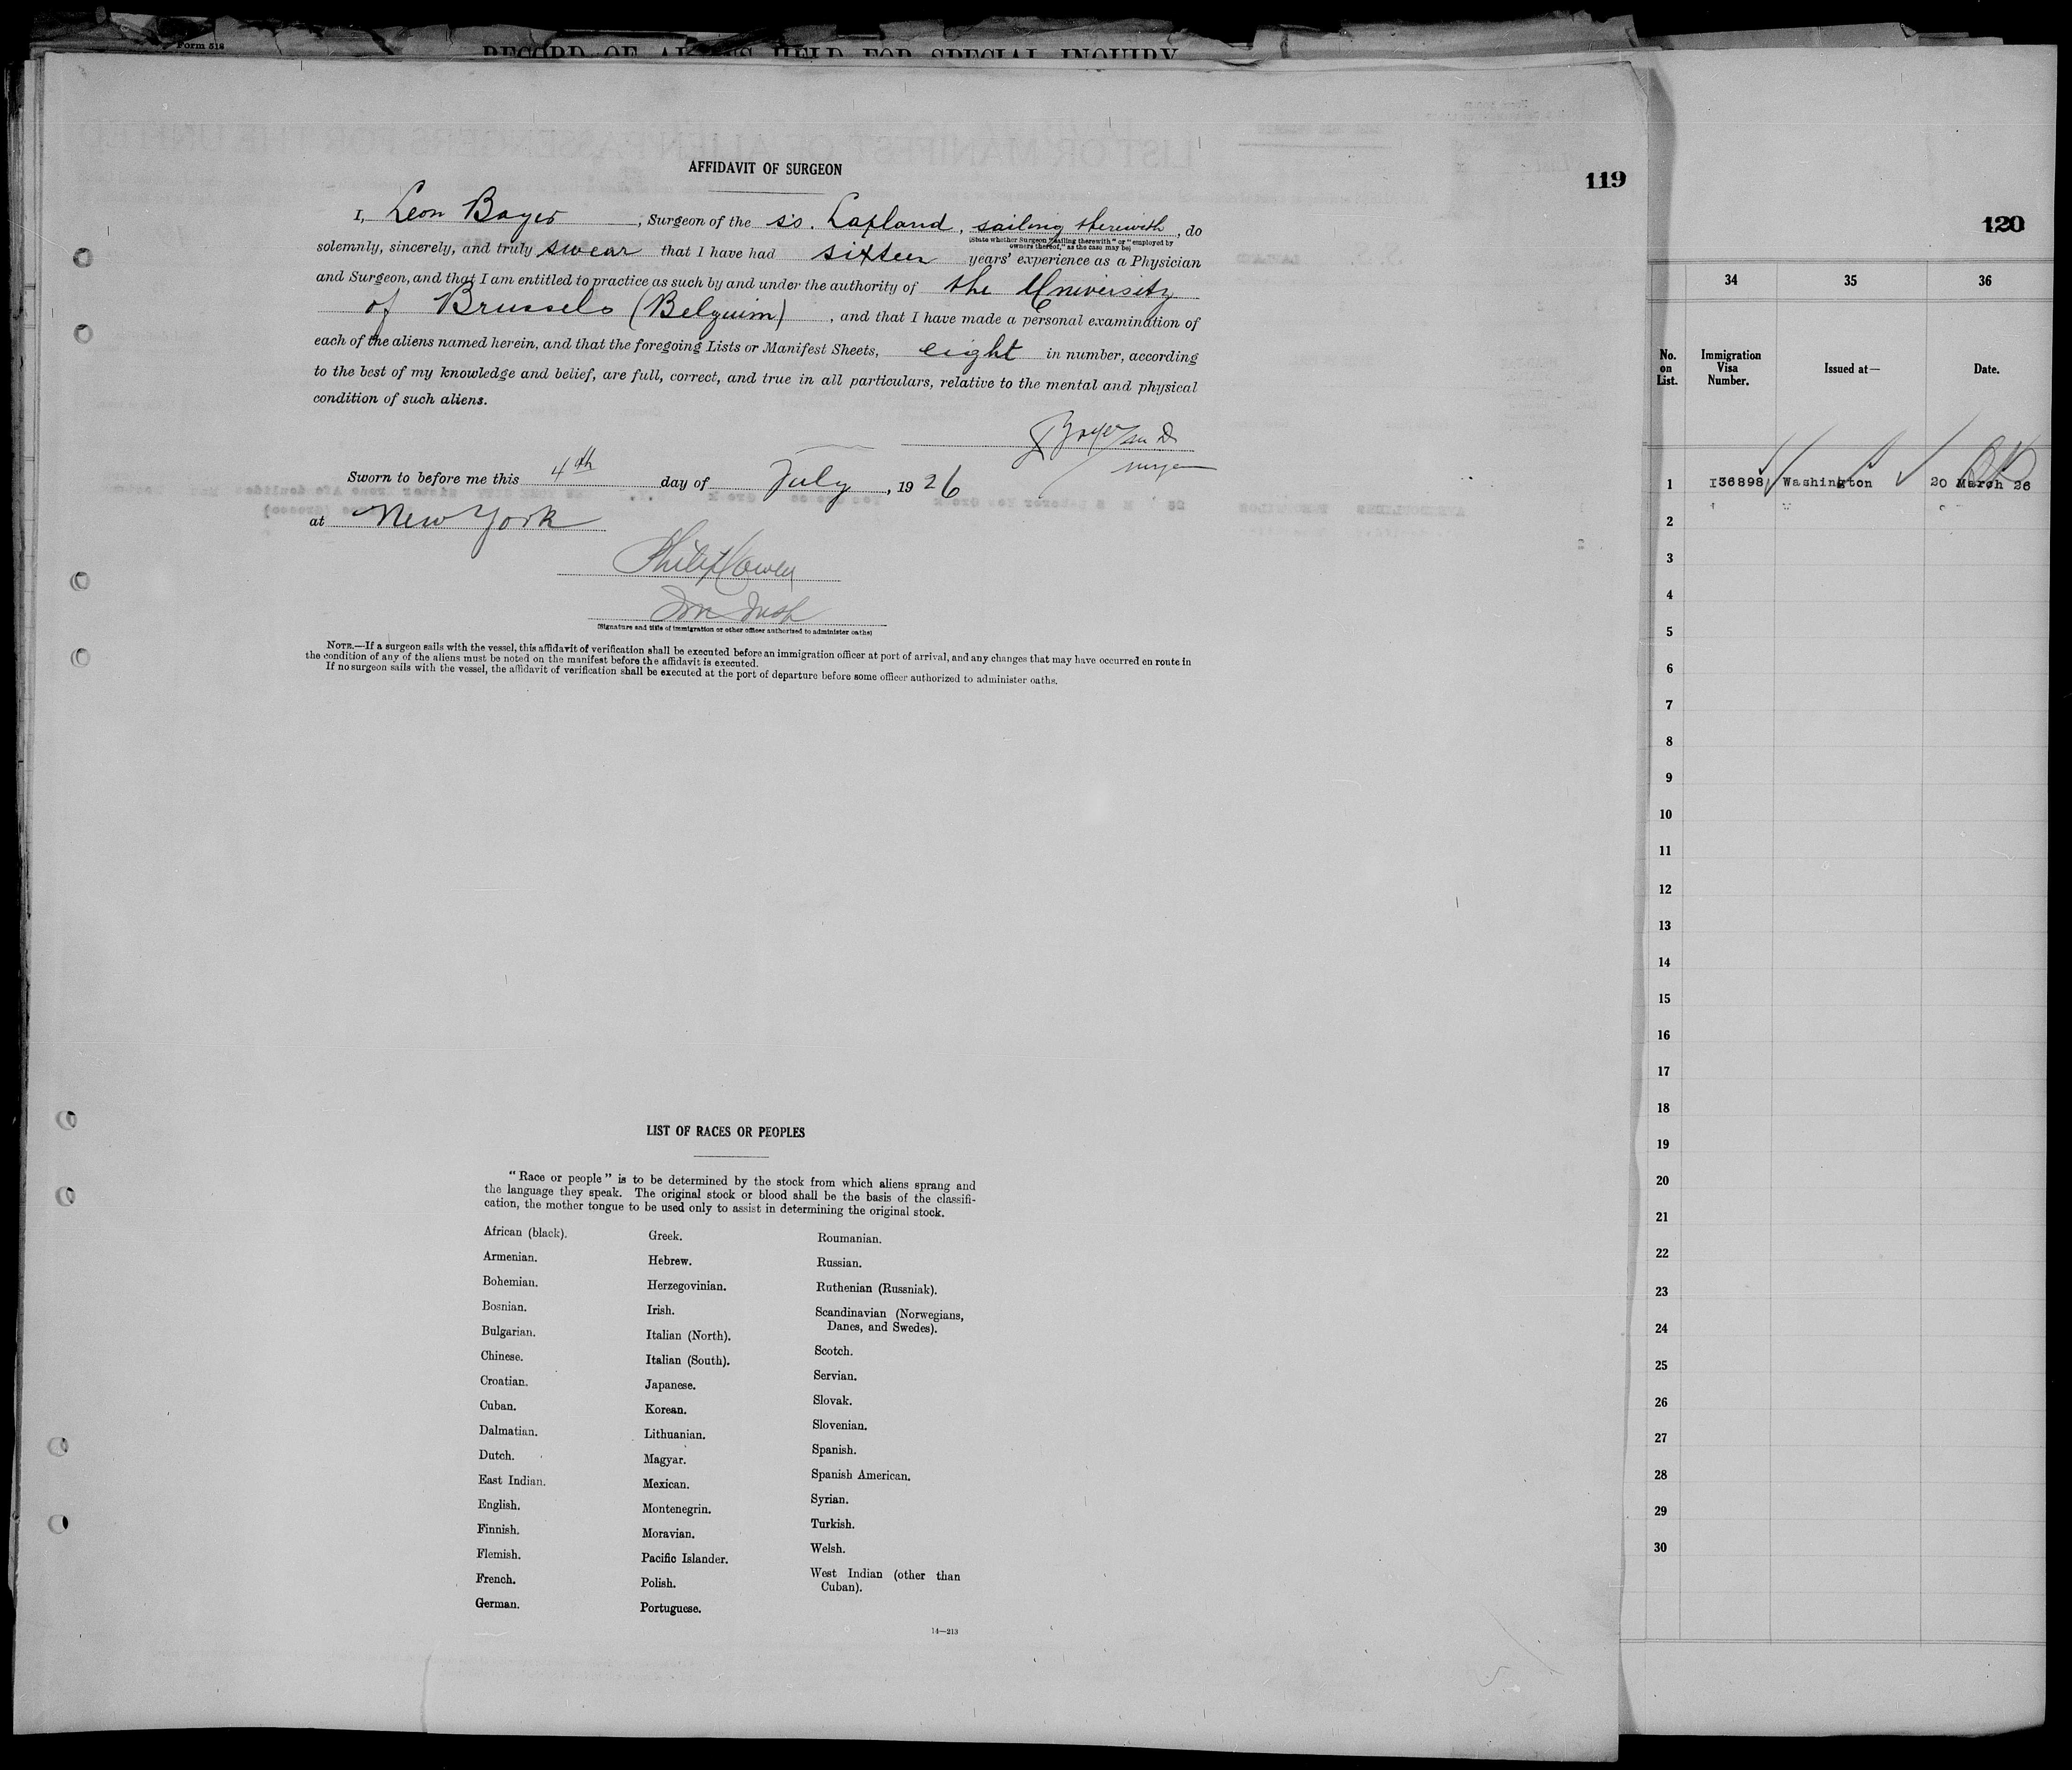 Form 518
RECORD OF ALIENS HELD FOR SPECIAL INQUIRY
119
AFFIDAVIT OF SURGEON
I, Leon Boyer, Surgeon of the ss. Lapland, sailing therewith, do
(State whether Surgeon "sailing therewith" or "employed by
owners thereof," as the case may be)
solemnly, sincerely, and truly swear that I have had sixteen years' experience as a Physician
and Surgeon, and that I am entitled to practice as such by and under the authority of the University
of Brussels (Belguim), and that I have made a personal examination of
each of the aliens named herein, and that the foregoing Lists or Manifest Sheets, eight in number, according
to the best of my knowledge and belief, are full, correct, and true in all particulars, relative to the mental and physical
condition of such aliens.
Sworn to before me this 4th day of July, 1926
at New York
(Signature and title of immigration or other officer authorized to administer oaths)
NOTE.—If a surgeon sails with the vessel, this affidavit of verification shall be executed before an immigration officer at port of arrival, and any changes that may have occurred en route in
the condition of any of the aliens must be noted on the manifest before the affidavit is executed.
If no surgeon sails with the vessel, the affidavit of verification shall be executed at the port of departure before some officer authorized to administer oaths.
LIST OF RACES OR PEOPLES
"Race or people" is to be determined by the stock from which aliens sprang and
the language they speak. The original stock or blood shall be the basis of the classifi-
cation, the mother tongue to be used only to assist in determining the original stock.
African (black).
Armenian.
Bohemian.
Bosnian.
Bulgarian.
Chinese.
Croatian.
Cuban.
Dalmatian.
Dutch.
East Indian.
English.
Finnish.
Flemish.
French.
German.
Greek.
Hebrew.
Herzegovinian.
Irish.
Italian (North).
Italian (South).
Japanese.
Korean.
Lithuanian.
Magyar.
Mexican.
Montenegrin.
Moravian.
Pacific Islander.
Polish.
Portuguese.
Roumanian.
Russian.
Ruthenian (Russniak).
Scandinavian (Norwegians,
Danes, and Swedes).
Scotch.
Servian.
Slovak.
Slovenian.
Spanish.
Spanish American.
Syrian.
Turkish.
Welsh.
West Indian (other than
Cuban).
14—213
120
34 35 36
No.
on
List.
Immigration
Visa
Number.
Issued at—
Date.
1 I36898 Washington 20 March 26
2
3
4
5
6
7
8
9
10
11
12
13
14
15
16
17
18
19
20
21
22
23
24
25
26
27
28
29
30